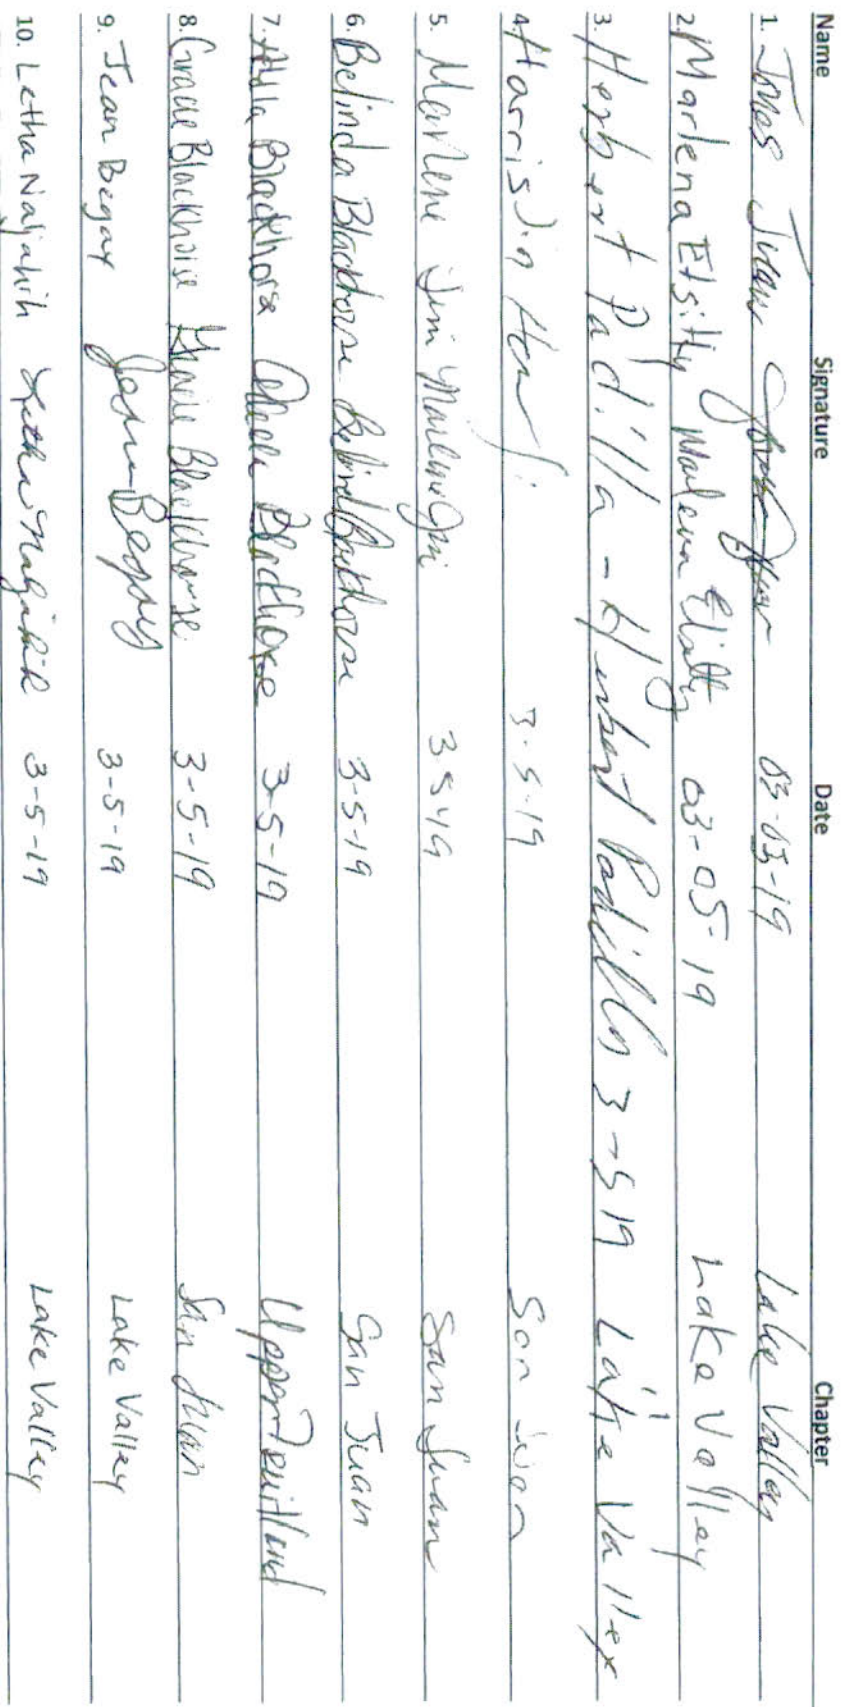 Name Signature Date Chapter
1. Jones Juan 03-03-19 Lake Valley
2. Marlena Etsitty Marlena Etsitty 03-05-19 Lake Valley
3. Herbert Padilla - Herbert Padilla 3-5-19 Lake Valley
4. Harrison 3-5-19 San Juan
5. Marlene Jim Marlene Jim 3-5-19 San Juan
6. Belinda Blackhorse Belinda Blackhorse 3-5-19 San Juan
7. Blackhorse Blackhorse 3-5-19 Upper Fruitland
8. Gracie Blackhorse Gracie Blackhorse 3-5-19 San Juan
9. Jean Begay Jean Begay 3-5-19 Lake Valley
10. Letha Najahih Letha Najahih 3-5-19 Lake Valley